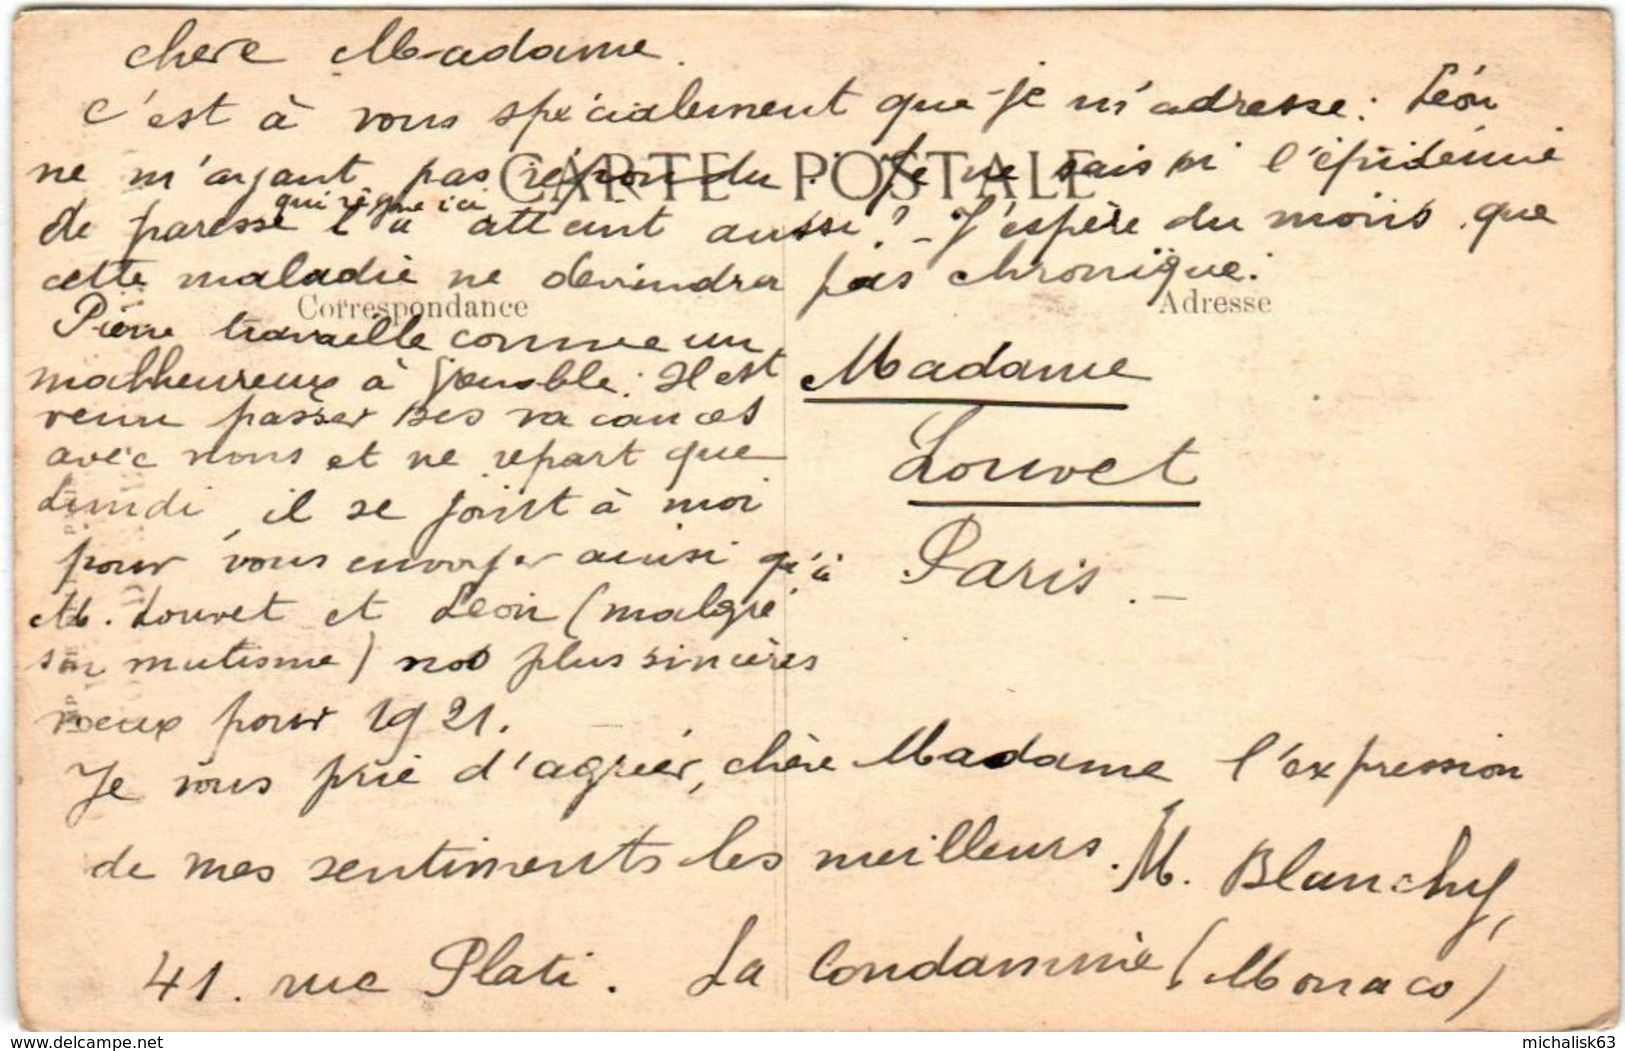 chere Madame.
C'est à vous spécialement que je m'adresse: Léon
ne m'ayant pas répondu. Je ne sais si l'épidémie
qui règne ici
de paresse l'a atteint aussi? - J'espère du moins que
cette maladie ne deviendra pas chronique.
CARTE POSTALE
Correspondance
Adresse
Pierre travaille comme un
malheureux à Grenoble. Il est
venu passer ses vacances
avec nous et ne repart que
Lundi, il se joint à moi
pour vous envoyer ainsi qu'à
M. Louvet et Léon (malgré
son mutisme) nos plus sincères
voeux pour 1921.
Madame
Louvet
Paris. -
Je vous prie d'agréer, chère Madame l'expression
de mes sentiments les meilleurs. M. Blanchy,
41. rue Plati. La Condamine (Monaco)
www.delcampe.net
michalisk63